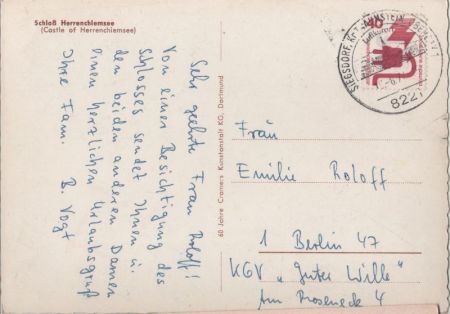 Schloß Herrenchiemsee
(Castle of Herrenchiemsee)
Sehr geehrte Frau Roloff!
Von einer Besichtigung des
Schlosses sendet Ihnen u.
den beiden anderen Damen
einen herzlichen Urlaubsgruß
Ihre Fam. B. Vogt
60 Jahre Cramers Kunstanstalt KG, Dortmund
40
SIEGSDORF, KR TRAUNSTEIN
Luftkurort
8227
Frau
Emilie Roloff
1 Berlin 47
KGV „Guter Wille"
Am Roseneck 4